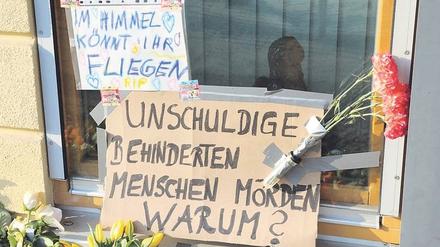 IM HIMMEL
KÖNNT IHR
FLIEGEN
RIP
UNSCHULDIGE
BEHINDERTEN
MENSCHEN MÖRDEN
WARUM?